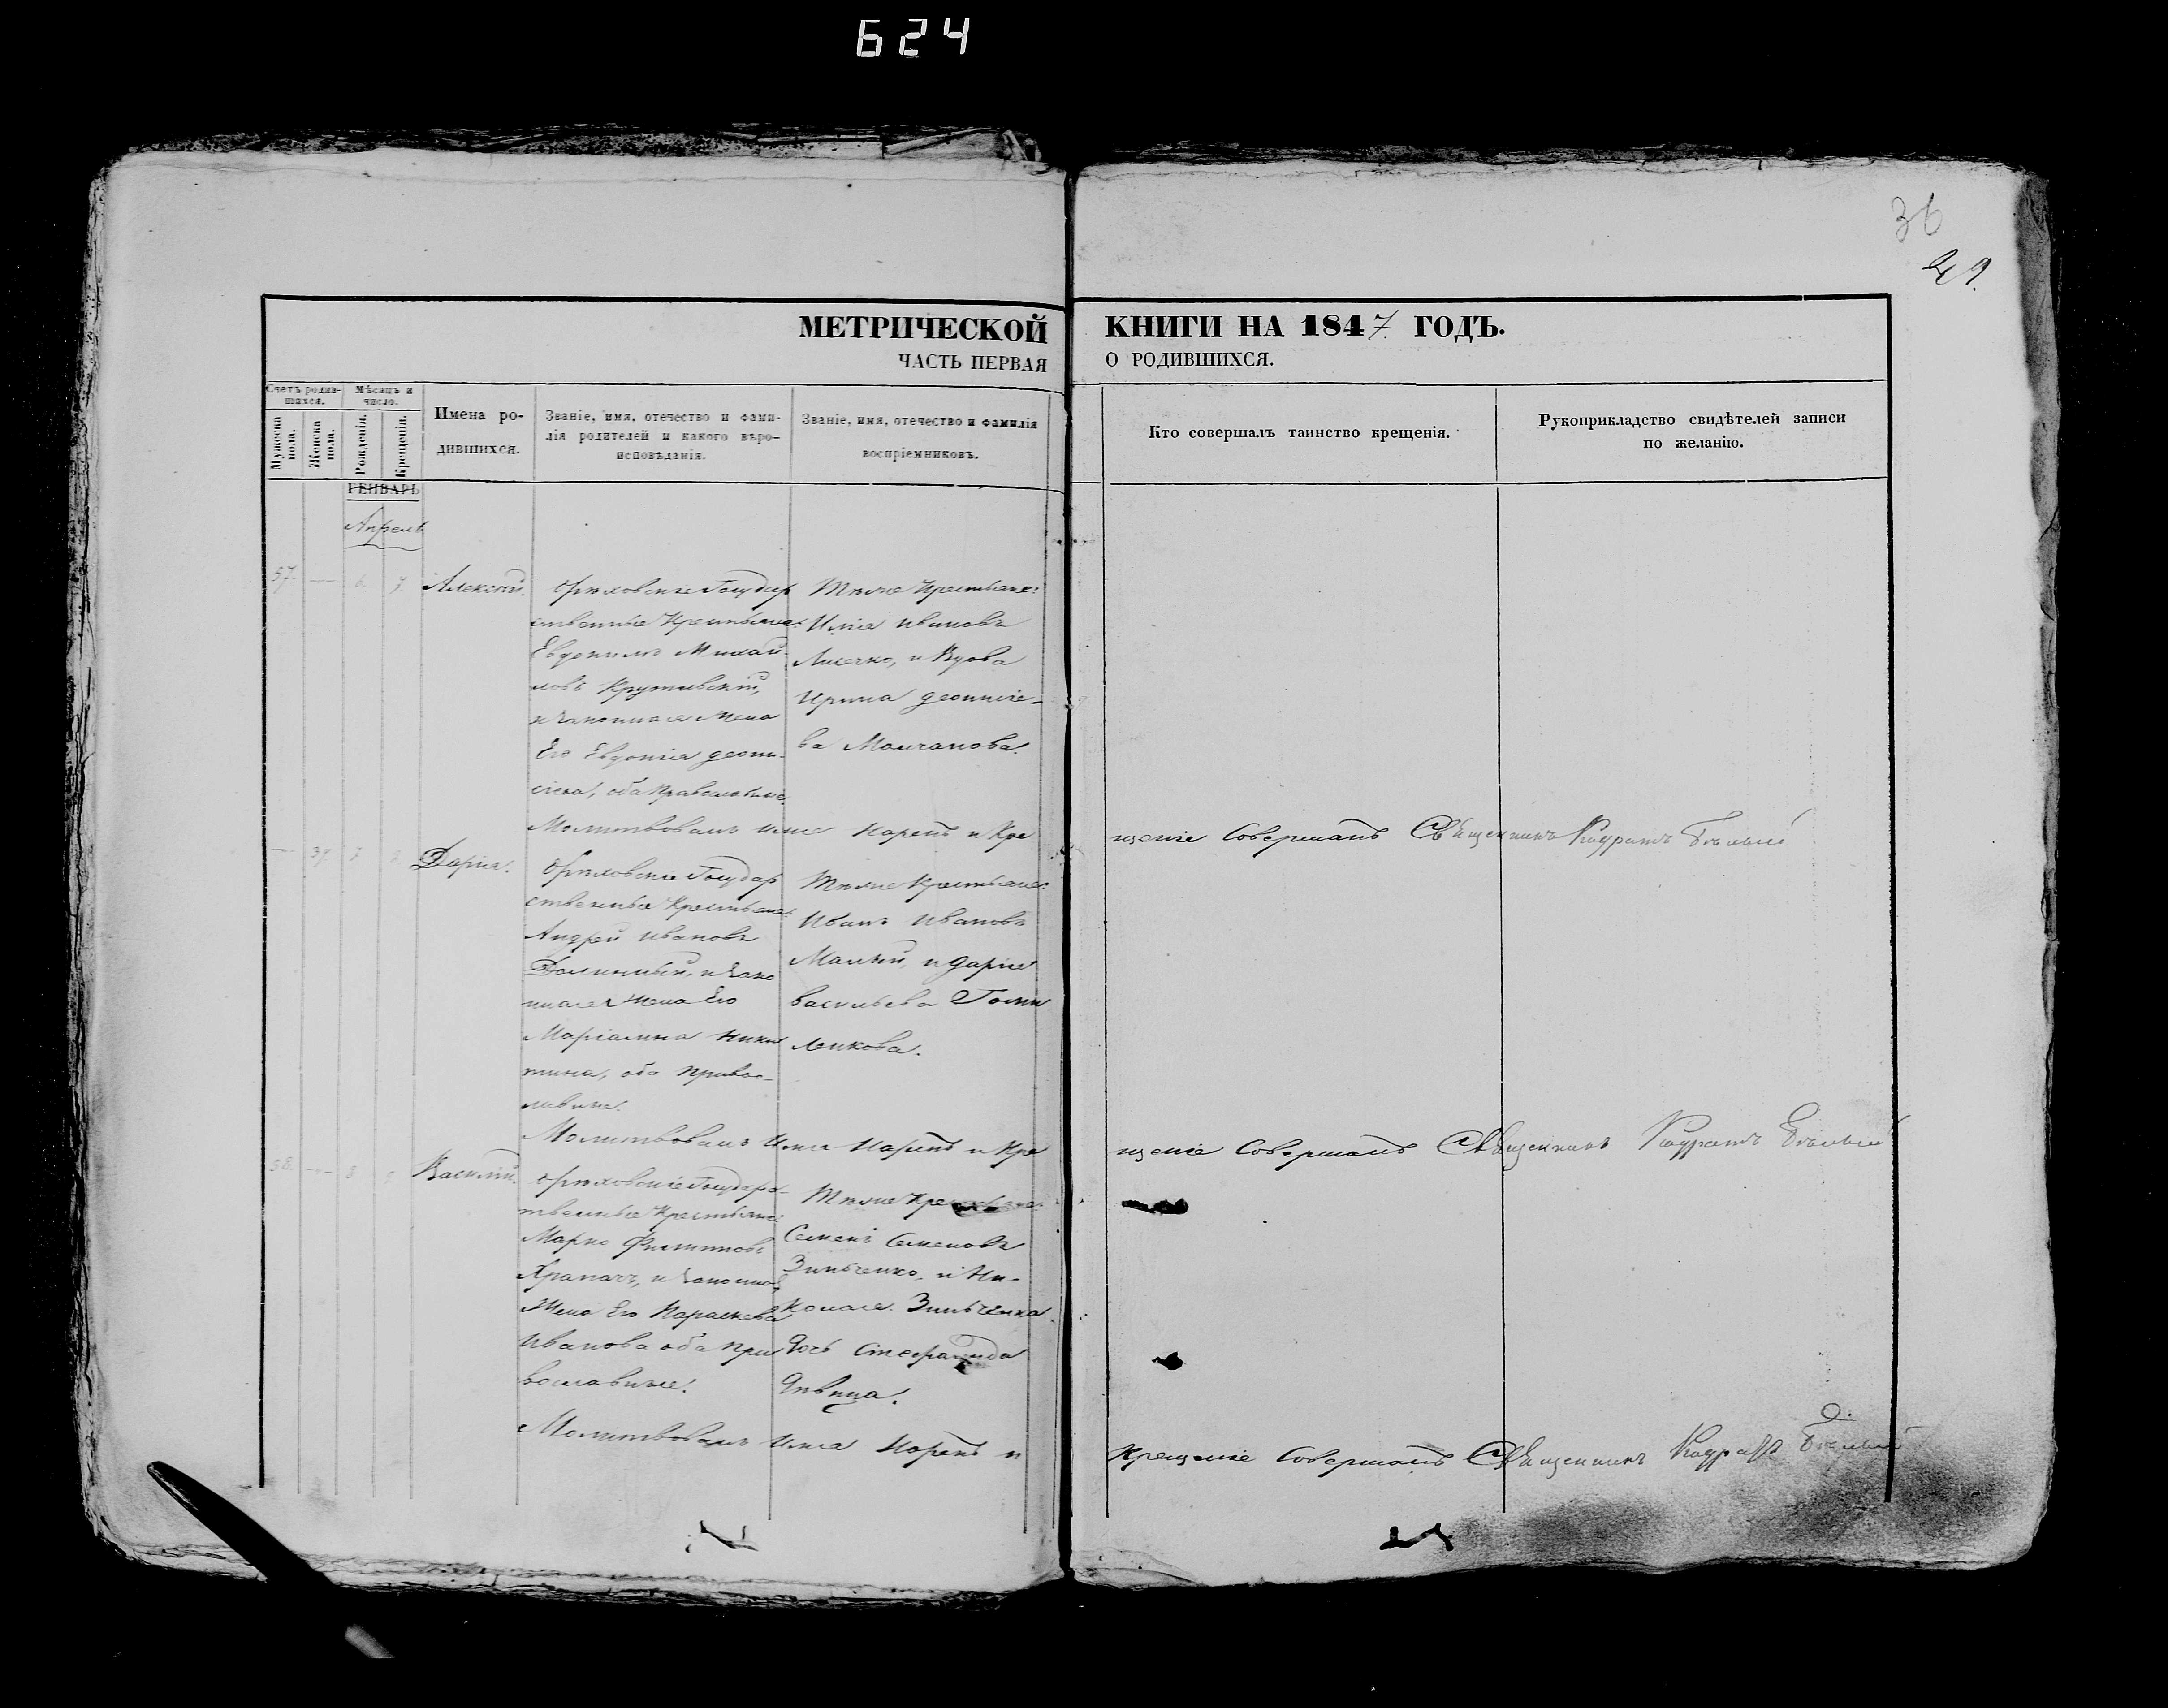 624
36
29.
МЕТРИЧЕСКОЙ КНИГИ НА 1847 ГОДЪ.
ЧАСТЬ ПЕРВАЯ О РОДИВШИХСЯ.
Счетъ родив-
шихся.
Мужеска
пола.
Женска
пола.
Мѣсяцъ и
число.
Рожденія.
Крещенія.
Имена ро-
дившихся.
Званіе, имя, отечество и фами-
лія родителей и какого вѣро-
исповѣданія.
Званіе, имя, отечество и фамилія
воспріемниковъ.
Кто совершалъ таинство крещенія.
Рукоприкладство свидѣтелей записи
по желанію.
ГЕНВАРЬ
Апрель
57. — 6. 7
Алексѣй.
Орѣховскіе Государ
ственные Крестьяне:
Евдокимъ Михай
ловъ
и законная Жена
Его Евдокія Деони-
сіева, оба православные.
Тѣже Крестьяне:
Илія Ивановъ
Лисечко, и Вдова
Ирина Деонисіе-
ва Молчанова.
Молитвовалъ Имя Нарекъ и Кре
щеніе Совершалъ Священникъ Кодратъ Бѣлый
— 37. 7
Дарія.
Орѣховскіе Государ
ственные Крестьяне:
Андрей Ивановъ
и зако
нная Жена Его
Марiамна Ники
тина, оба правос-
лавные.
Тѣже Крестьяне:
Иванъ Ивановъ
Малый, и Дарія
Васильева
Молитвовалъ Имя Нарекъ и Кре
щеніе Совершалъ Священникъ Кодратъ Бѣлый
58. — 8
Василій.
Орѣховскіе Государс-
твенные Крестьяне:
Марко Филиповъ
Храпачъ, и законная
Жена Его Параскева
Иванова оба пра
вославные.
Тѣже Крестьяне:
Семенъ Семеновъ
Зинченко, и Ни-
колая Зинченка
Дочь Стефанида
Дѣвица.
Молитвовалъ Имя Нарекъ и
Крещеніе Совершалъ Священникъ Кодратъ Бѣлый